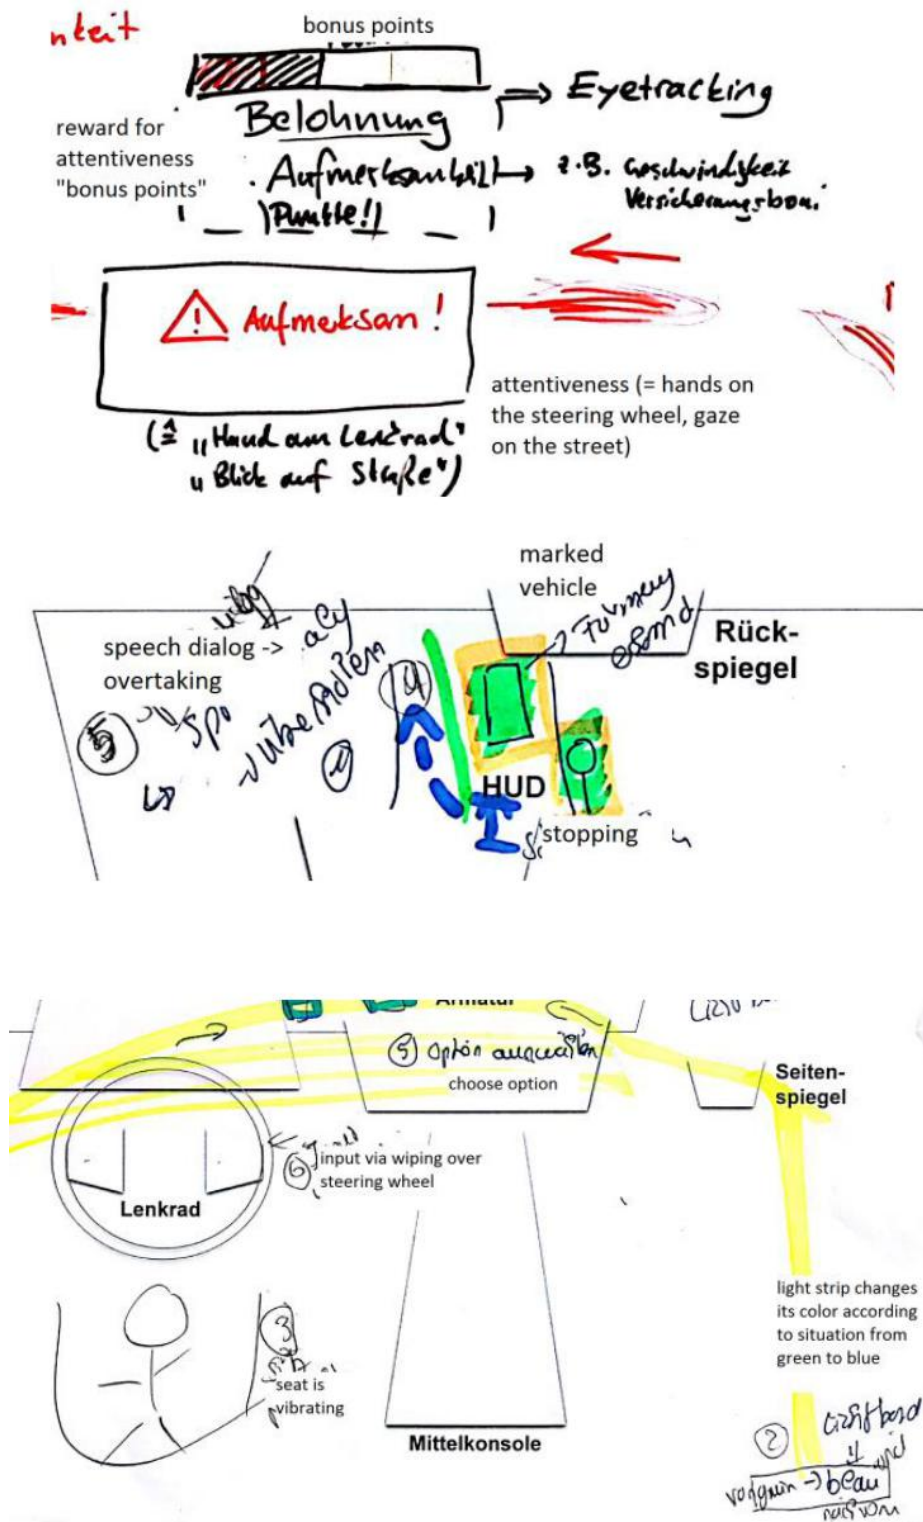 nkeit
bonus points
Belohnung
→ Eyetracking
reward for
attentiveness
"bonus points"
Aufmerksamkeit → z.B. Geschwindigkeit
Versicherungsboni
Punkte!
! Aufmerksam!
attentiveness (= hands on
the steering wheel, gaze
on the street)
(≙ „Hand am Lenkrad"
„Blick auf Straße")
marked
vehicle
speech dialog ->
overtaking
Rück-
spiegel
5
4
HUD
stopping
Armatur
5 Option auswählen
choose option
Seiten-
spiegel
6
input via wiping over
steering wheel
Lenkrad
light strip changes
its color according
to situation from
green to blue
3
seat is
vibrating
Mittelkonsole
2
Lichtband
von grün → blau